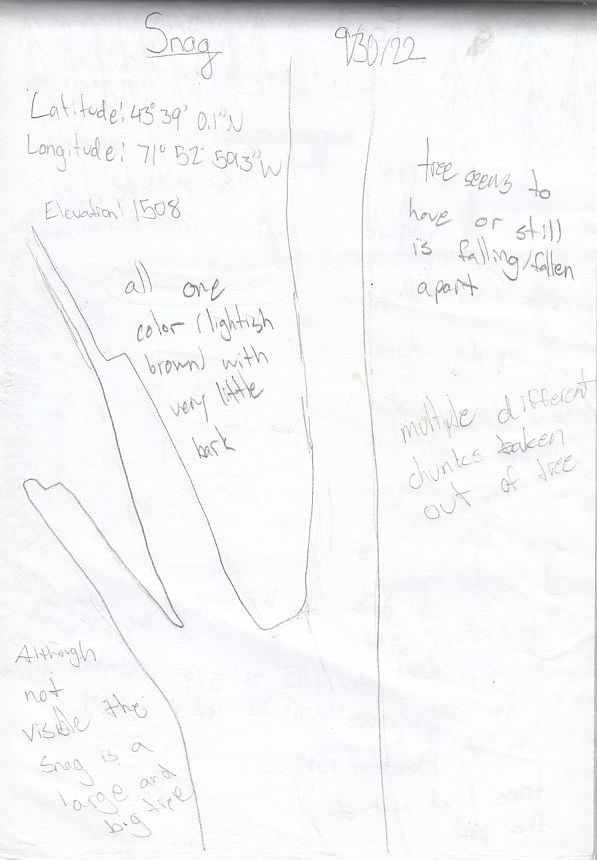 Snag
9/30/22
Latitude: 43° 39' 0.1"N
Longitude: 71° 52' 59.3"W
Elevation: 1508
all one
color (lightish
brown) with
very little
bark
tree seems to
have or still
is falling/fallen
apart
multiple different
chunks taken
out of tree
Although
not
visible the
snag is a
large and
big tree